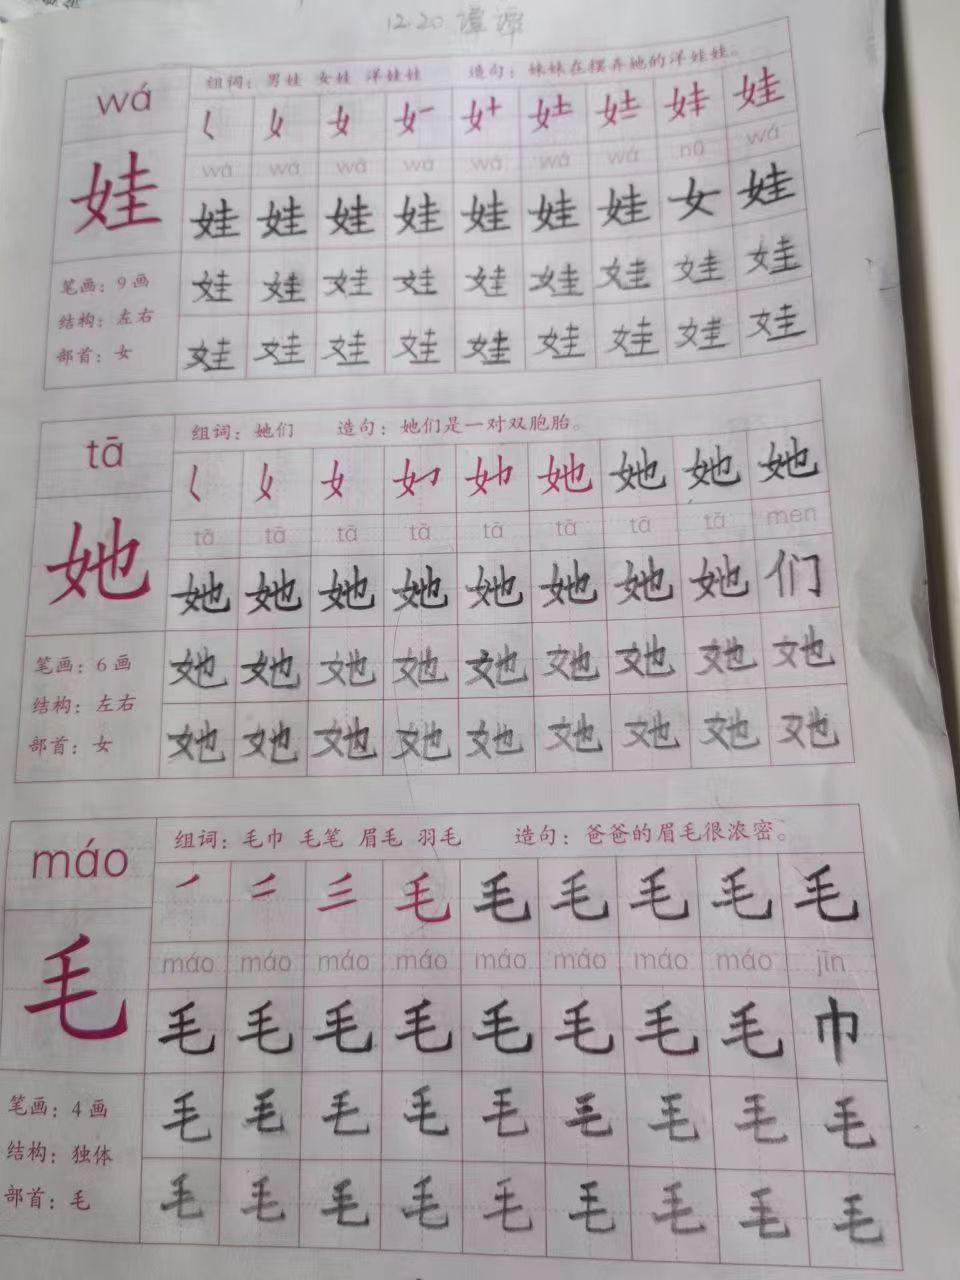 12.20 谭谭
wá
组词：男娃 女娃 洋娃娃 造句：妹妹在摆弄她的洋娃娃。
娃
wá wá wá wá wá wá wá nǚ wá
娃
娃 娃 娃 娃 娃 娃 娃 女 娃
笔画：9画
结构：左右
部首：女
娃 娃 娃 娃 娃 娃 娃 娃 娃
娃 娃 娃 娃 娃 娃 娃 娃 娃
tā
组词：她们 造句：她们是一对双胞胎。
女 她 她 她 她
tā tā tā tā tā tā tā tā men
她
她 她 她 她 她 她 她 她 们
笔画：6画
结构：左右
部首：女
她 她 她 她 她 她 她 她 她
她 她 她 她 她 她 她 她 她
máo
组词：毛巾 毛笔 眉毛 羽毛 造句：爸爸的眉毛很浓密。
毛 毛 毛 毛 毛 毛
máo máo máo máo máo máo máo máo jīn
毛
毛 毛 毛 毛 毛 毛 毛 毛 巾
笔画：4画
结构：独体
部首：毛
毛 毛 毛 毛 毛 毛 毛 毛 毛
毛 毛 毛 毛 毛 毛 毛 毛 毛